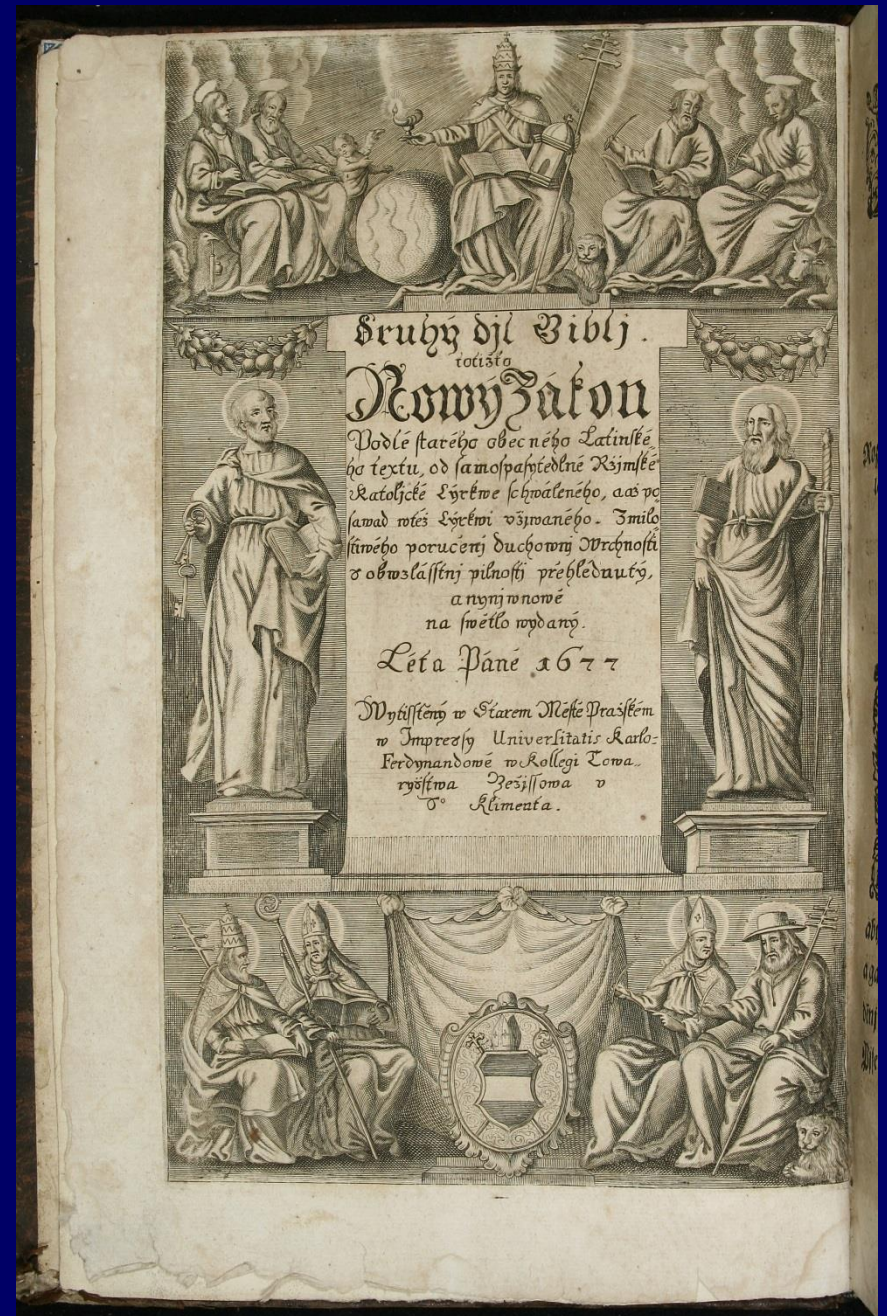 Druhý djl Biblj.
totižto
Nowý Zákon
Podlé starého obecného Latinské
ho textu, od samospasytedlné Ržjmské
Katoljcké Cýrkwe schwáleného, aaž po
sawad wtéž Cýrkwi vžjwaného. Zmilo
stiwého poručenj duchownj Wrchnosti
s obwzlásstnj pilnostj přehlédnutý,
a nynj wnowě
na swětlo wydaný.
Léta Páně 1677
Wytisstěný w Starem Městě Pražském
w Impressy Universitatis Karlo-
Ferdynandowě w Kollegi Towa-
ryšstwa Ježissowa v
S° Klimenta.